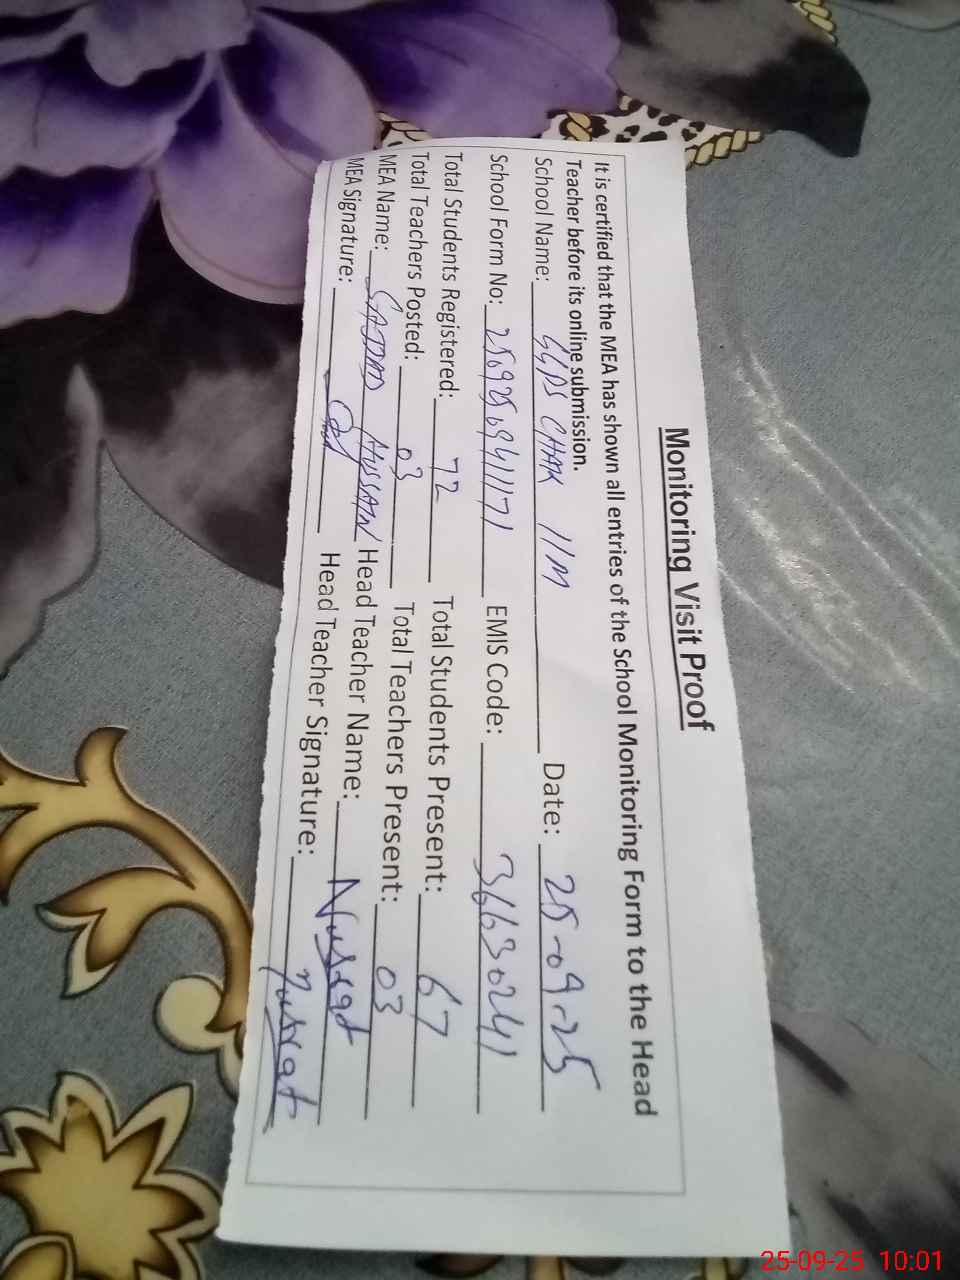 Monitoring Visit Proof
It is certified that the MEA has shown all entries of the School Monitoring Form to the Head
Teacher before its online submission.
School Name: GGPS CHAK 11M Date: 25-09-25
School Form No: 2509250941171 EMIS Code: 36630241
Total Students Registered: 72 Total Students Present: 67
Total Teachers Posted: 03 Total Teachers Present: 03
MEA Name: SAJJAD HUSSAIN Head Teacher Name: Nusrat
MEA Signature: Head Teacher Signature: Nusrat
25-09-25 10:01